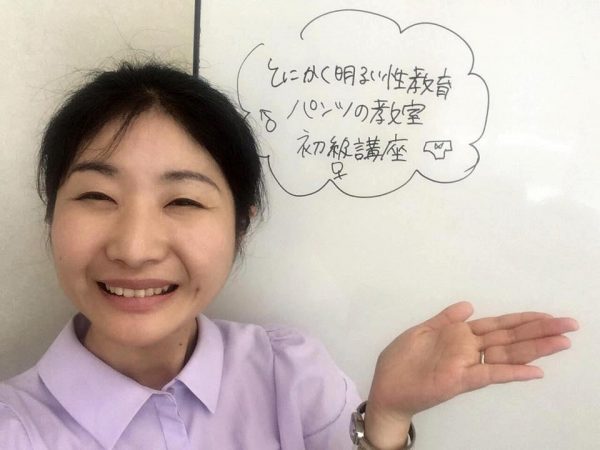 とにかく明るい性教育
パンツの教室
初級講座